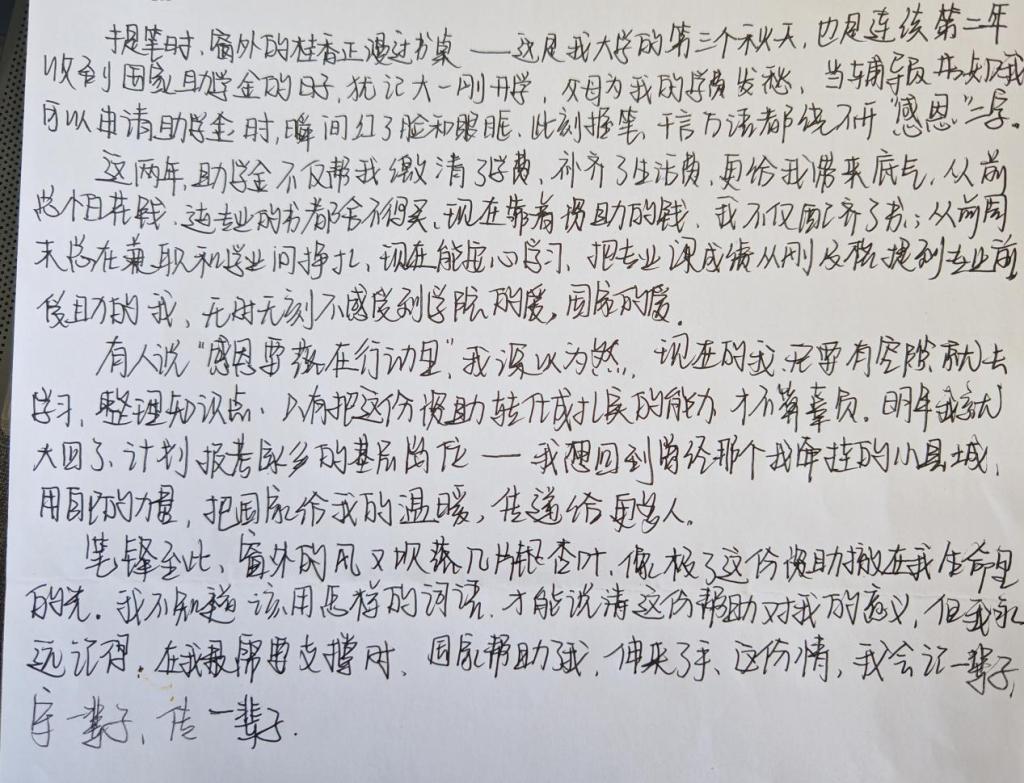 提笔时,窗外的桂香正漫过书桌——这是我大学的第三个秋天,也是连续第二年
收到国家助学金的日子,犹记大一刚开学,父母为我的学费发愁,当辅导员告知我
可以申请助学金时,瞬间红了脸和眼眶.此刻握笔,千言万语都绕不开“感恩”二字。
这两年,助学金不仅帮我缴清了学费,补齐了生活费,更给我带来底气,从前
总怕花钱,连专业的书都舍不得买,现在靠着资助的钱,我不仅配齐了书;从前周
末总在兼职和学业间挣扎,现在能安心学习,把专业课成绩从刚及格提到专业前
受助的我,无时无刻不感受到学院的爱,国家的爱.
有人说“感恩要落在行动里”,我深以为然,现在的我,只要有空隙就去
学习,整理知识点.只有把这份资助转化成扎实的能力,才不算辜负.明年我就
大四了,计划报考家乡的基层岗位——我想回到曾经那个我牵挂的小县城,
用自己的力量,把国家给我的温暖,传递给更多人。
笔锋至此,窗外的风又吹落几片银杏叶,像极了这份资助撒在我生命里
的光.我不知道该用怎样的词语,才能说清这份帮助对我的意义,但我永
远记得,在我最需要支撑时,国家帮助了我,伸来了手,这份情,我会记一辈子,
守一辈子,传一辈子.